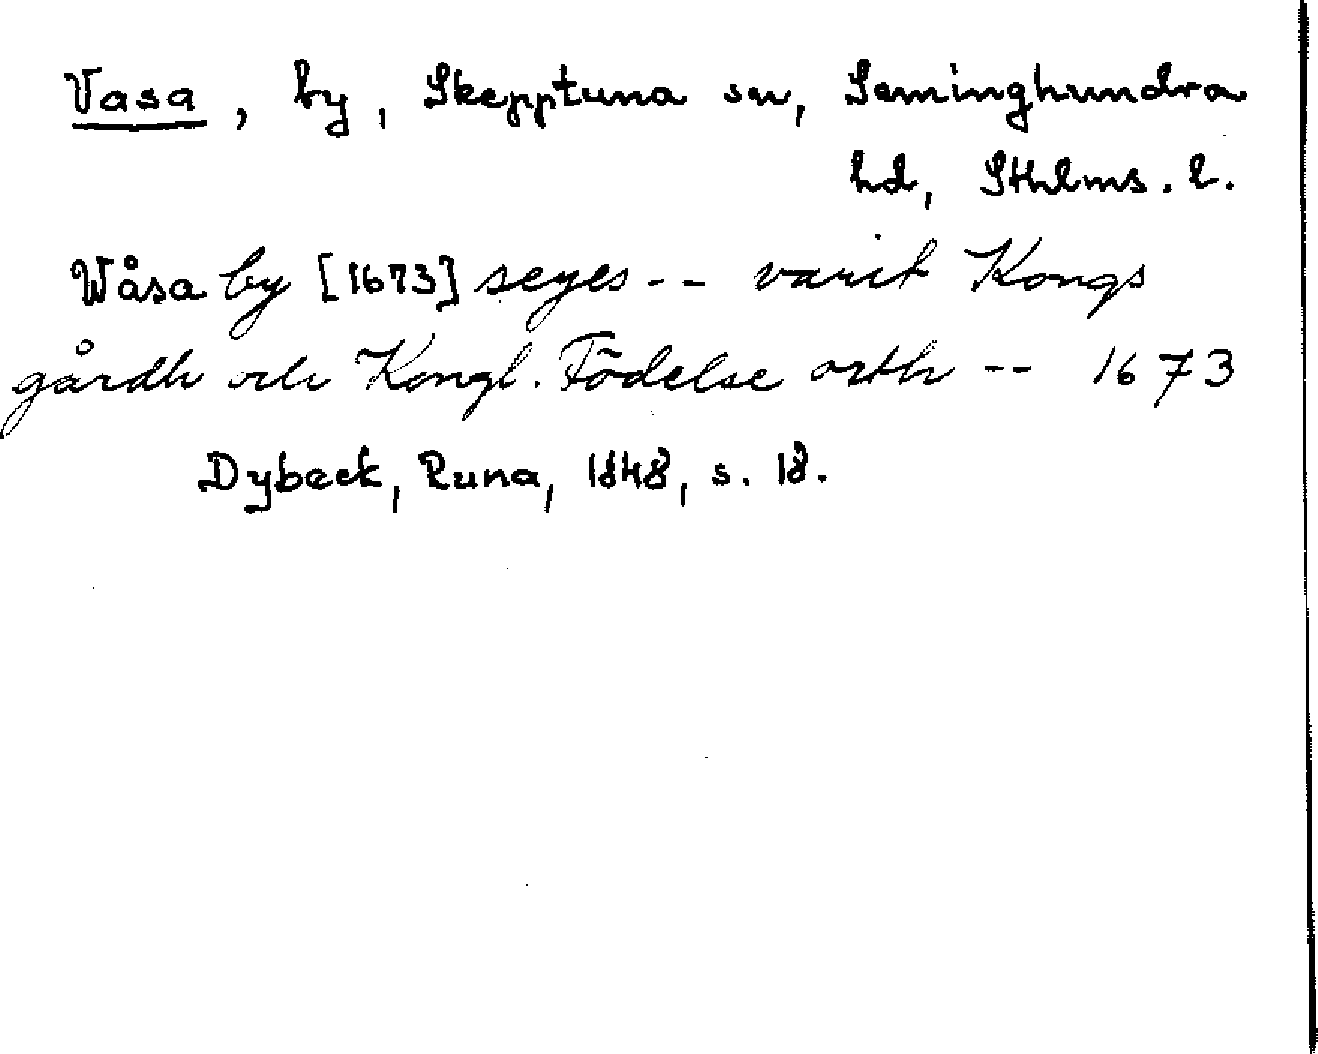 Vasa, by, Skepptuna sn, Seminghundra
hd, Sthlms. l.
Wåsa by [1673] seyes -- varit Kongs
gårdh och Kongl. Födelse orth -- 1673
Dybeck, Runa, 1848, s. 18.